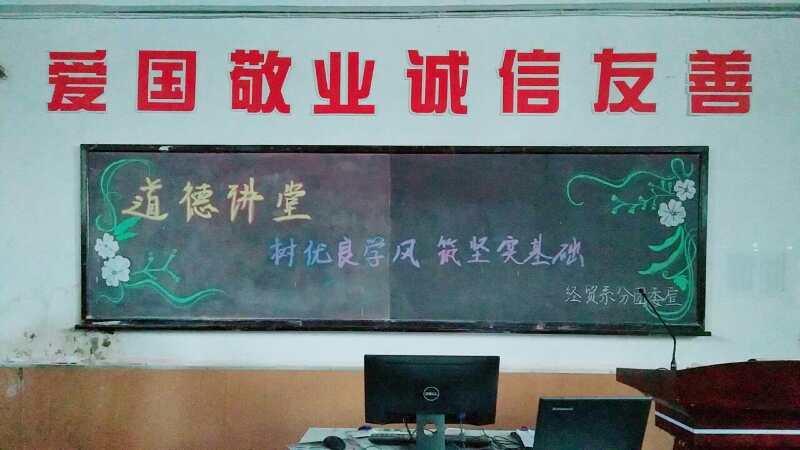 爱国敬业诚信友善
道德讲堂
树优良学风 筑坚实基础
经贸系分团委宣
DELL